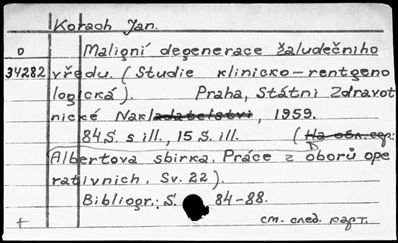 Korach Jan.
D Maligní degenerace žaludečního
34282 vředu. (Studie klinicko-rentgeno
logická). Praha, Státní Zdravot
nické Nakladatelství, 1959.
84 S. s ill., 15 S. ill. (На обл. сер:
Albertova sbirka. Práce z oborů ope
rativnich. Sv. 22).
Bibliogr.: S. 84-88.
+ см. след. карт.